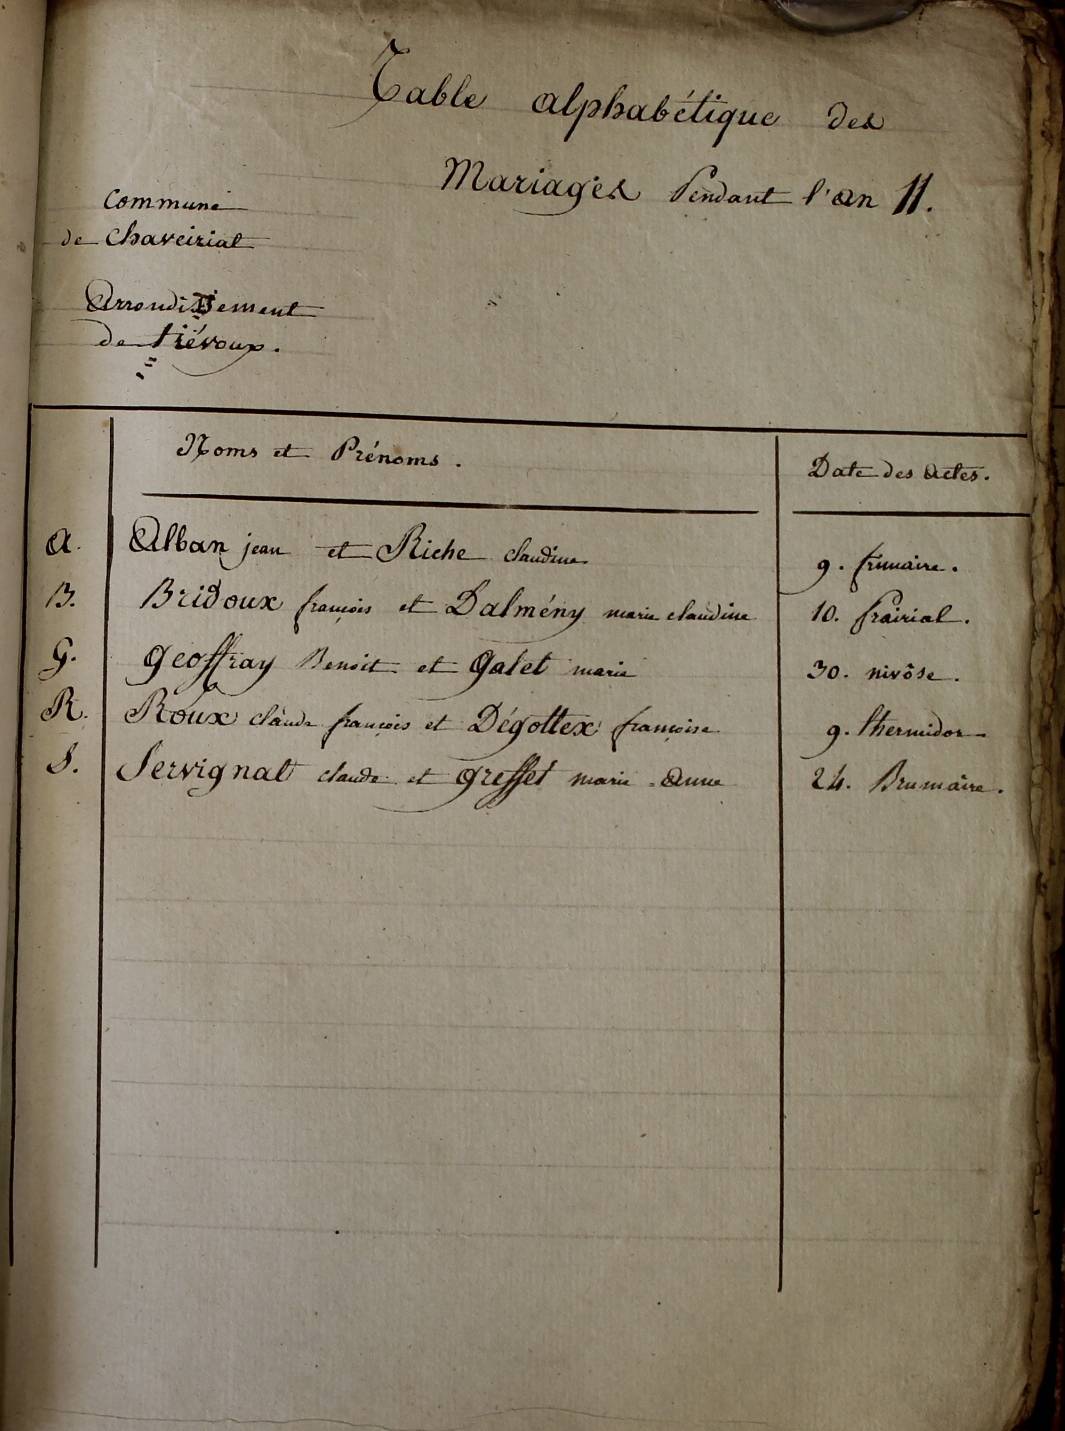 Table alphabétique des
Mariages Pendant l'an 11.
Commune
de Chaveiriat
Arrondissement
de trévoux.
Noms et Prénoms.
Date des Actes.
A. Alban jean et Riche claudine 9. frimaire.
B. Bridoux françois et Dalmény marie claudine 10. prairial.
G. Geoffray Benoit et Galet marie 30. nivôse.
R. Roux claude françois et Dégottex françoise 9. thermidor
S. Servignat claude et Greffet marie Anne 24. Brumaire.